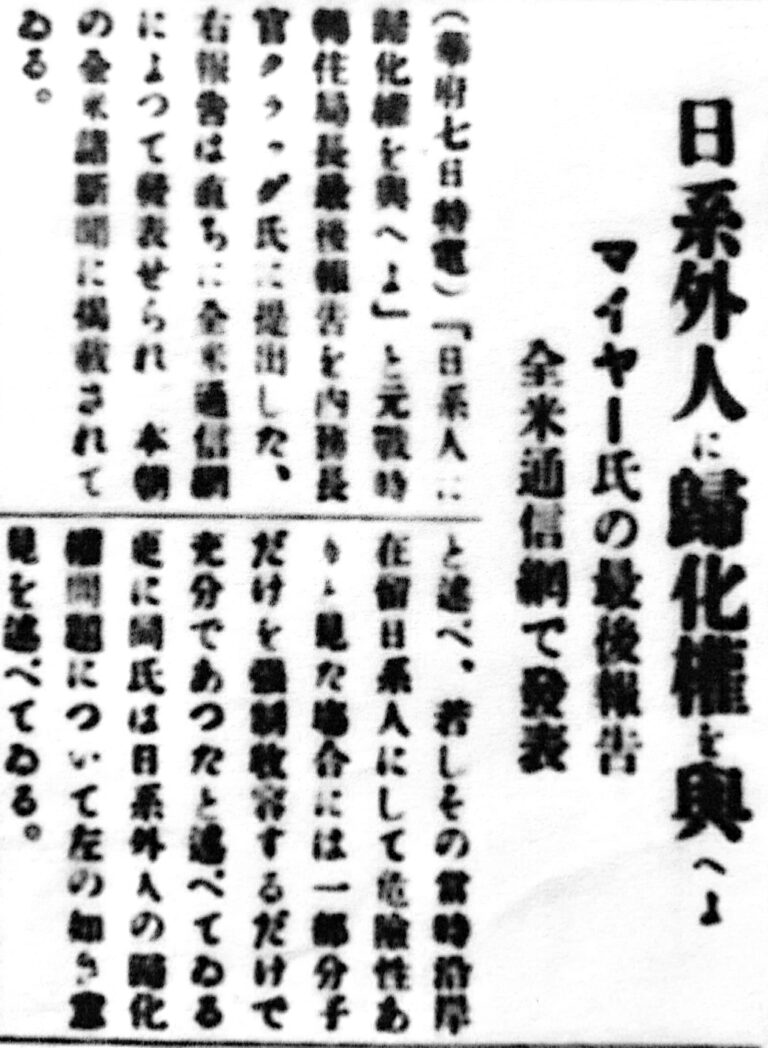 日系外人に歸化權を與へよ
マイヤー氏の最後報告
全米通信網で發表
(華府七日特電)「日系人に
歸化權を與へよ」と元戰時
轉住局長最後報告を內務長
官クラッグ氏に提出した、
右報告は直ちに全米通信網
によつて發表せられ 本朝
の全米諸新聞に揭載されて
ゐる。
と述べ、若しその當時沿岸
在留日系人にして危險性あ
りと見た場合には一部分子
だけを强制收容するだけで
充分であつたと述べてゐる
更に同氏は日系外人の歸化
權問題について左の如き意
見を述べてゐる。